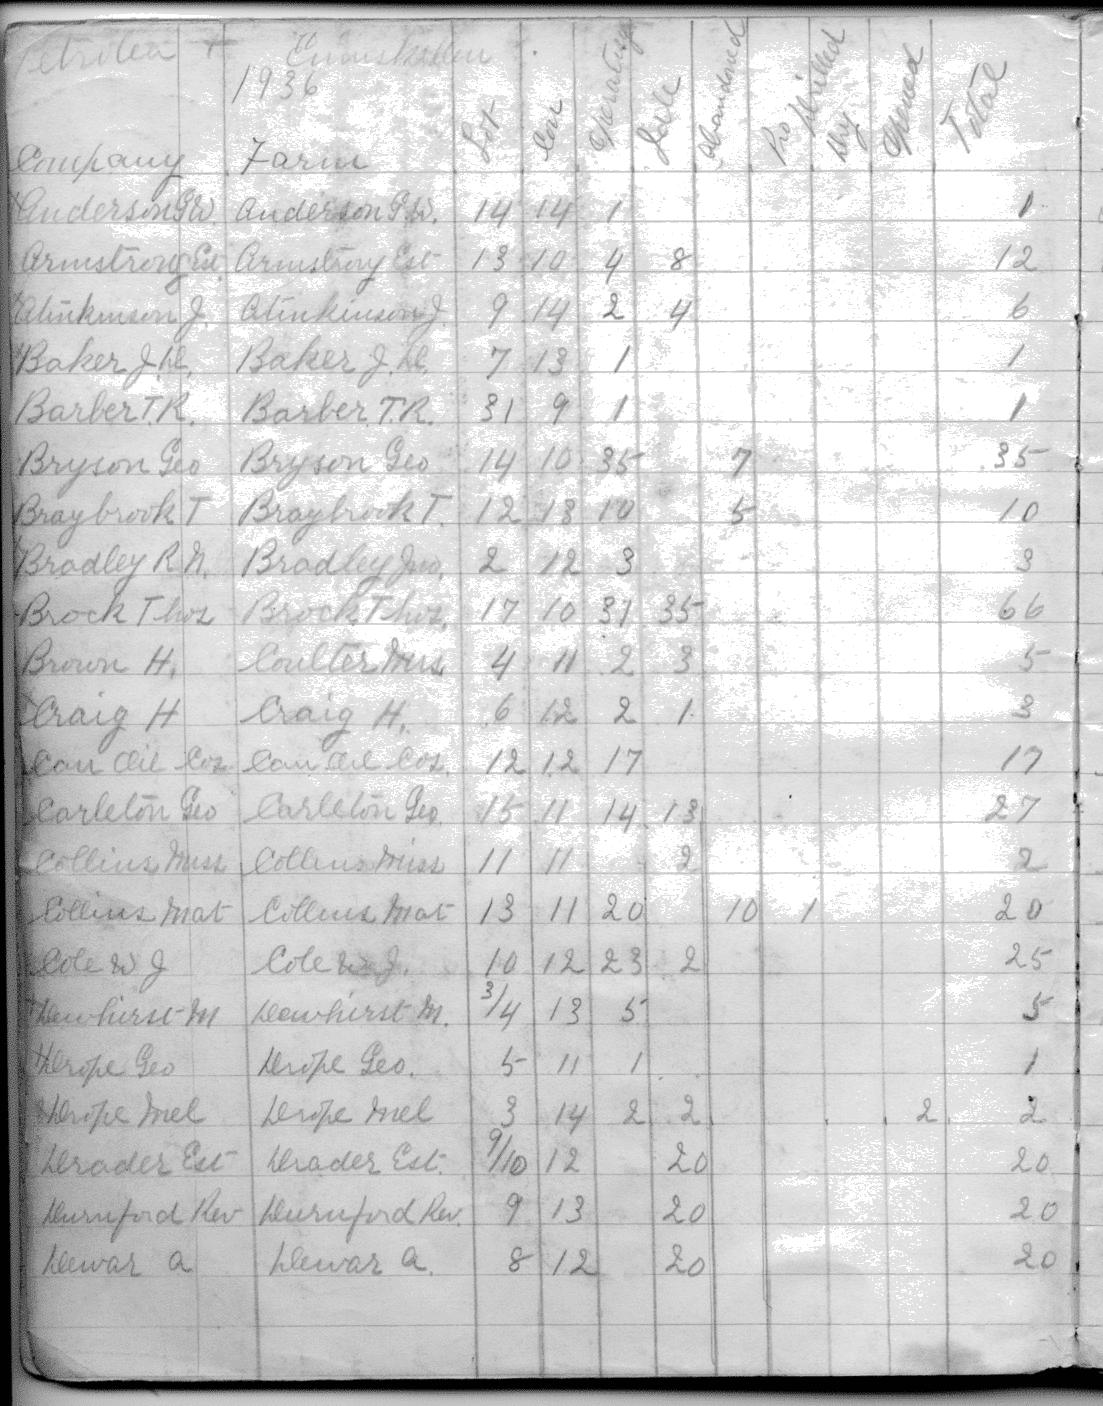 Petrolea + Enniskillen
1936
Company Farm Lot Con Operating Idle Abandoned Pro Drilled Dry Opened Total
Anderson P.W. Anderson P.W. 14 14 1 1
Armstrong Est. Armstrong Est 13 10 4 8 12
Atinkinson J. Atinkinson J. 9 14 2 4 6
Baker J. Baker J. 7 13 1 1
Barber T.R. Barber T.R. 31 9 1 1
Bryson Geo Bryson Geo 14 10 35 7 35
Braybrook T Braybrook T. 12 13 10 5 10
Bradley R N. Bradley Jno. 2 12 3 3
Brock Thos Brock Thos. 17 10 31 35 66
Brown H. Coulter Mrs. 4 11 2 3 5
Craig H Craig H. 6 12 2 1 3
Can Oil Cos. Can Oil Cos. 12 12 17 17
Carleton Geo Carleton Geo. 15 11 14 13 27
Collins Miss Collins Miss 11 11 2 2
Collins Mat Collins Mat 13 11 20 10 1 20
Cole W J Cole W. J. 10 12 23 2 25
Dewhirst M Dewhirst M. 3/4 13 5 5
Drope Geo Drope Geo. 5 11 1 1
Drope Mel Drope Mel 3 14 2 2 2 2
Drader Est Drader Est. 9/10 12 20 20
Durnford Rev Durnford Rev. 9 13 20 20
Dewar A Dewar A. 8 12 20 20